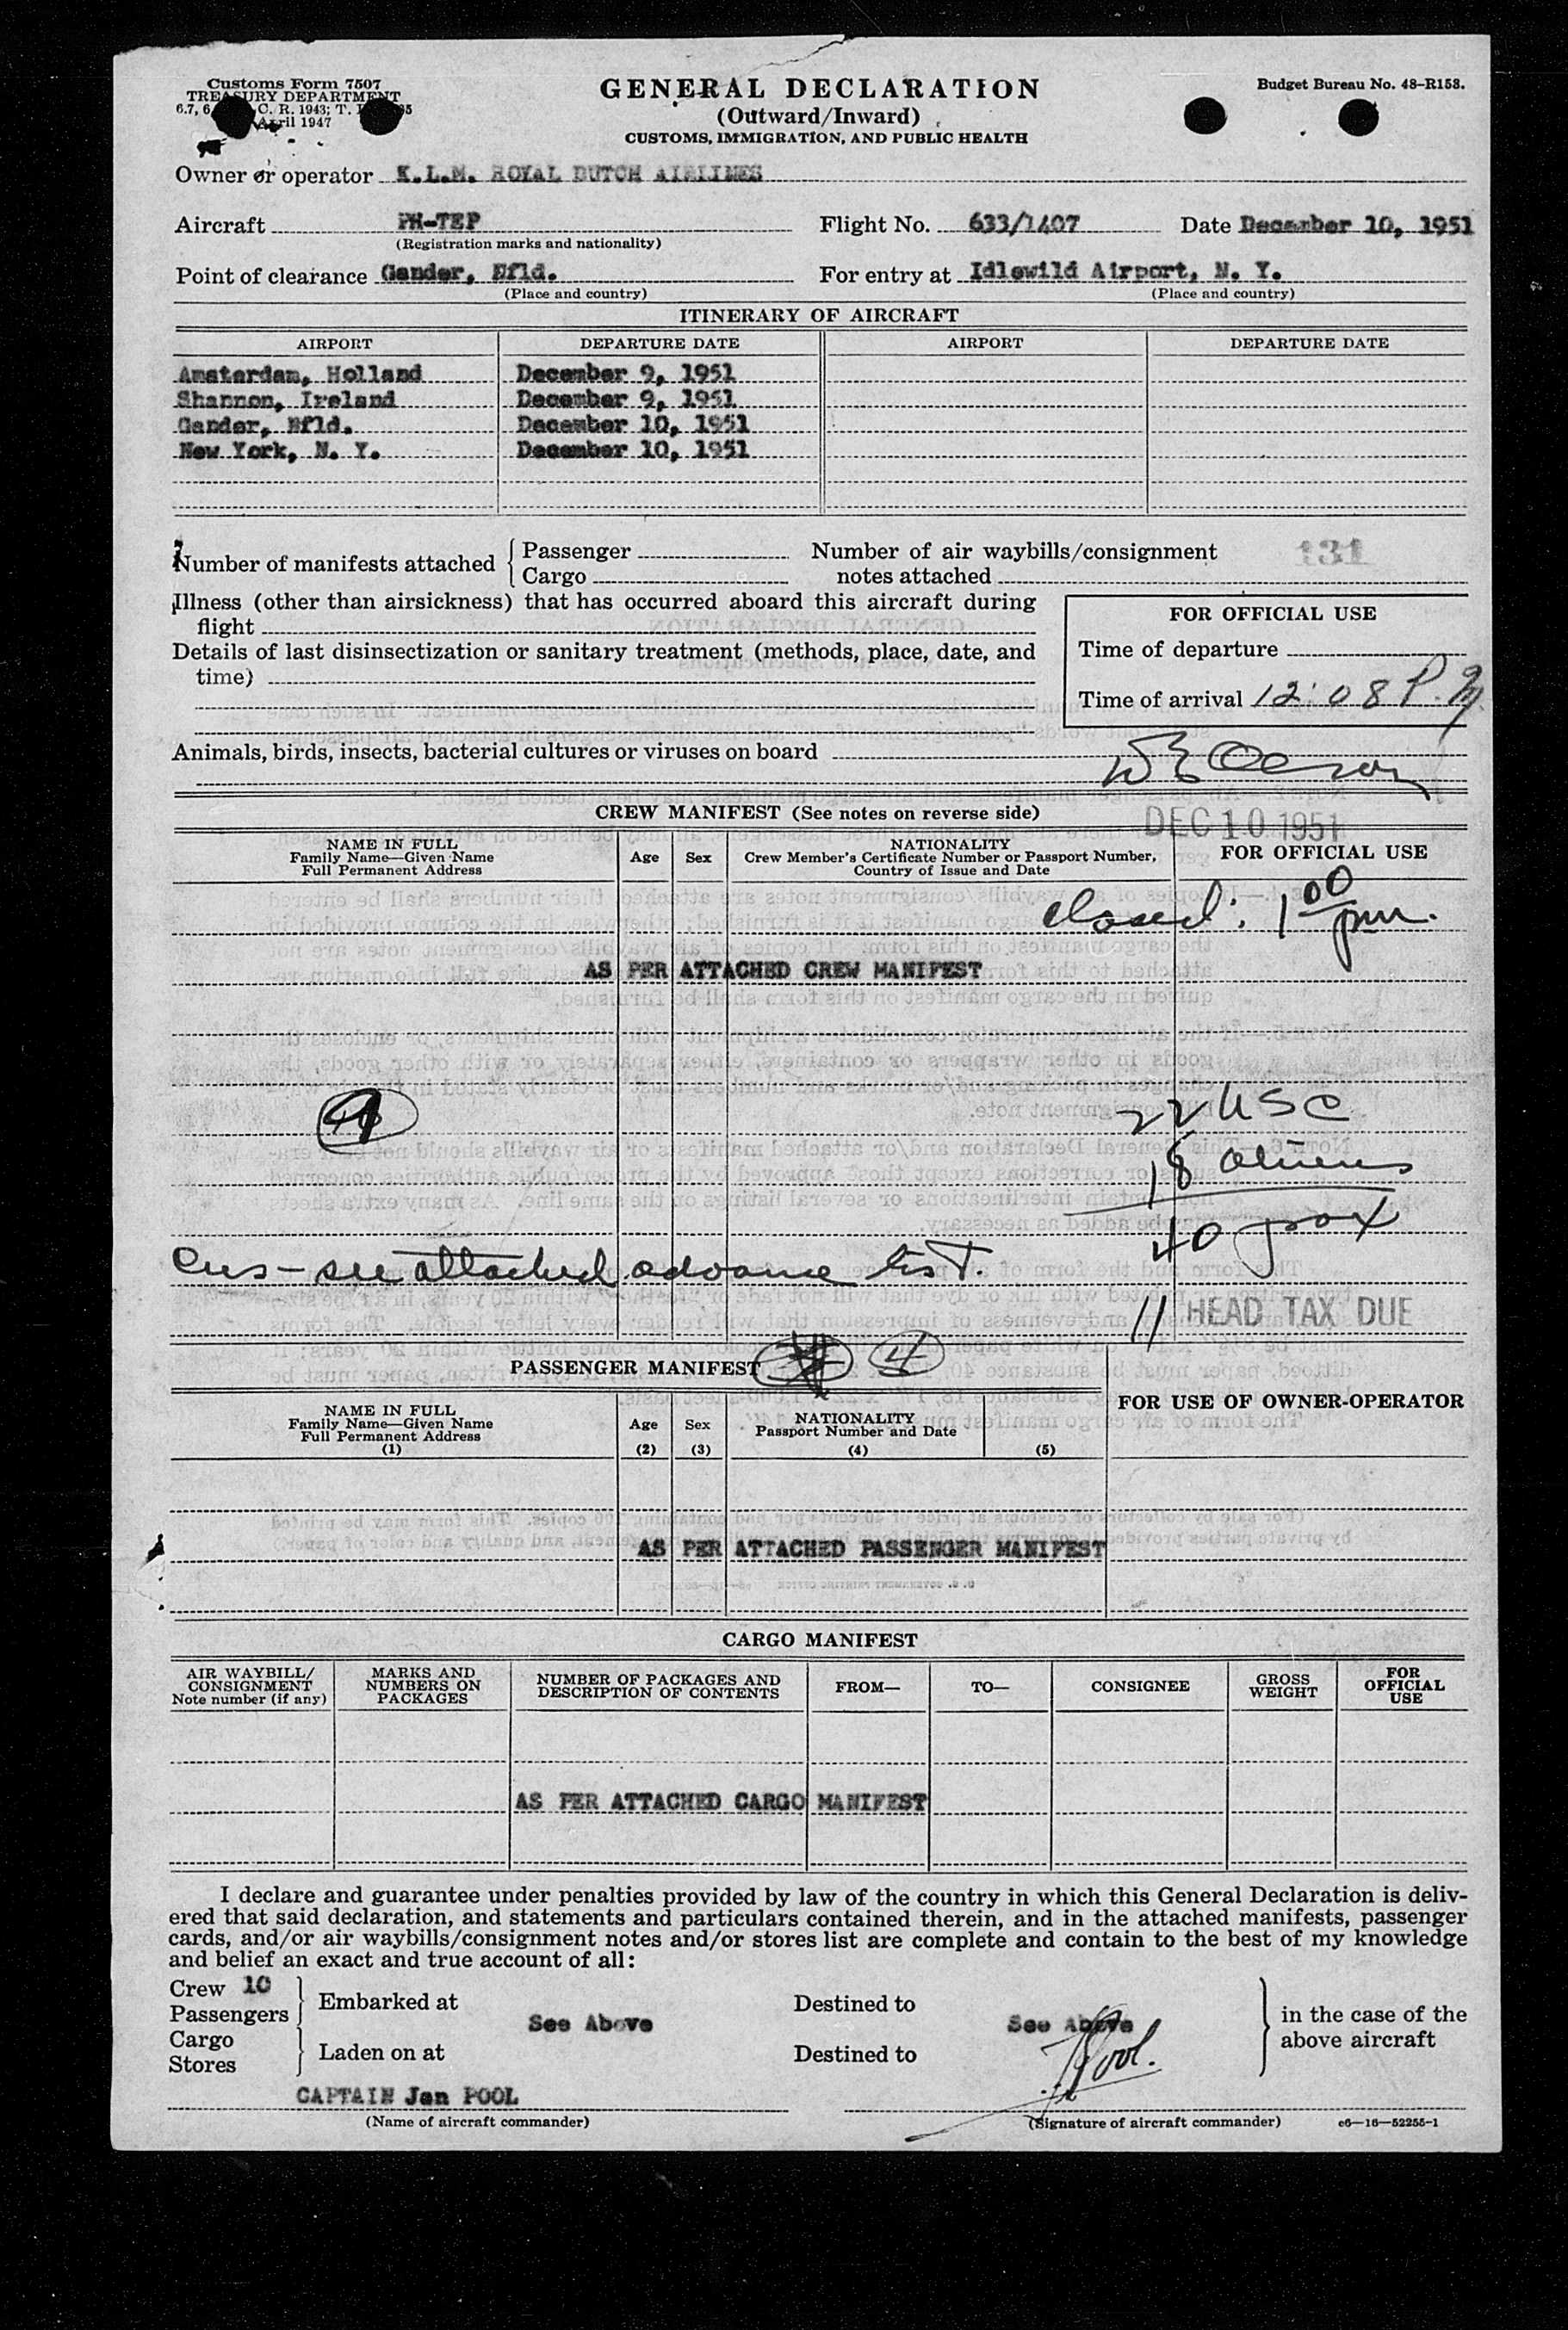 Customs Form 7507
TREASURY DEPARTMENT
C. R. 1943; T.
April 1947
GENERAL DECLARATION
(Outward/Inward)
CUSTOMS, IMMIGRATION, AND PUBLIC HEALTH
Budget Bureau No. 48-R158.
Owner or operator K.L.M. ROYAL DUTCH AIRLINES
Aircraft PH-TEP Flight No. 633/1407 Date December 10, 1951
(Registration marks and nationality)
Point of clearance Gander, Nfld. For entry at Idlewild Airport, N. Y.
(Place and country) (Place and country)
ITINERARY OF AIRCRAFT
AIRPORT DEPARTURE DATE AIRPORT DEPARTURE DATE
Amsterdam, Holland December 9, 1951
Shannon, Ireland December 9, 1951
Gander, Nfld. December 10, 1951
New York, N. Y. December 10, 1951
Number of manifests attached { Passenger
Cargo
Number of air waybills/consignment
notes attached
131
Illness (other than airsickness) that has occurred aboard this aircraft during
flight
Details of last disinsectization or sanitary treatment (methods, place, date, and
time)
FOR OFFICIAL USE
Time of departure
Time of arrival 12:08 P.M.
Animals, birds, insects, bacterial cultures or viruses on board
CREW MANIFEST (See notes on reverse side)
DEC 10 1951
NAME IN FULL
Family Name—Given Name
Full Permanent Address
Age
Sex
NATIONALITY
Crew Member's Certificate Number or Passport Number,
Country of Issue and Date
FOR OFFICIAL USE
closed: 1 00 pm.
AS PER ATTACHED CREW MANIFEST
22 USC
18 aliens
40 pax
see attached advance list.
11 HEAD TAX DUE
PASSENGER MANIFEST 4
NAME IN FULL
Family Name—Given Name
Full Permanent Address
(1)
Age
(2)
Sex
(3)
NATIONALITY
Passport Number and Date
(4)
(5)
FOR USE OF OWNER-OPERATOR
AS PER ATTACHED PASSENGER MANIFEST
CARGO MANIFEST
AIR WAYBILL/
CONSIGNMENT
Note number (if any)
MARKS AND
NUMBERS ON
PACKAGES
NUMBER OF PACKAGES AND
DESCRIPTION OF CONTENTS
FROM—
TO—
CONSIGNEE
GROSS
WEIGHT
FOR
OFFICIAL
USE
AS PER ATTACHED CARGO MANIFEST
I declare and guarantee under penalties provided by law of the country in which this General Declaration is deliv-
ered that said declaration, and statements and particulars contained therein, and in the attached manifests, passenger
cards, and/or air waybills/consignment notes and/or stores list are complete and contain to the best of my knowledge
and belief an exact and true account of all:
Crew 10
Passengers
Embarked at See Above Destined to See Above
Cargo
Stores
Laden on at Destined to
in the case of the
above aircraft
J Pool.
CAPTAIN Jan POOL
(Name of aircraft commander) (Signature of aircraft commander) c6—16—52255-1